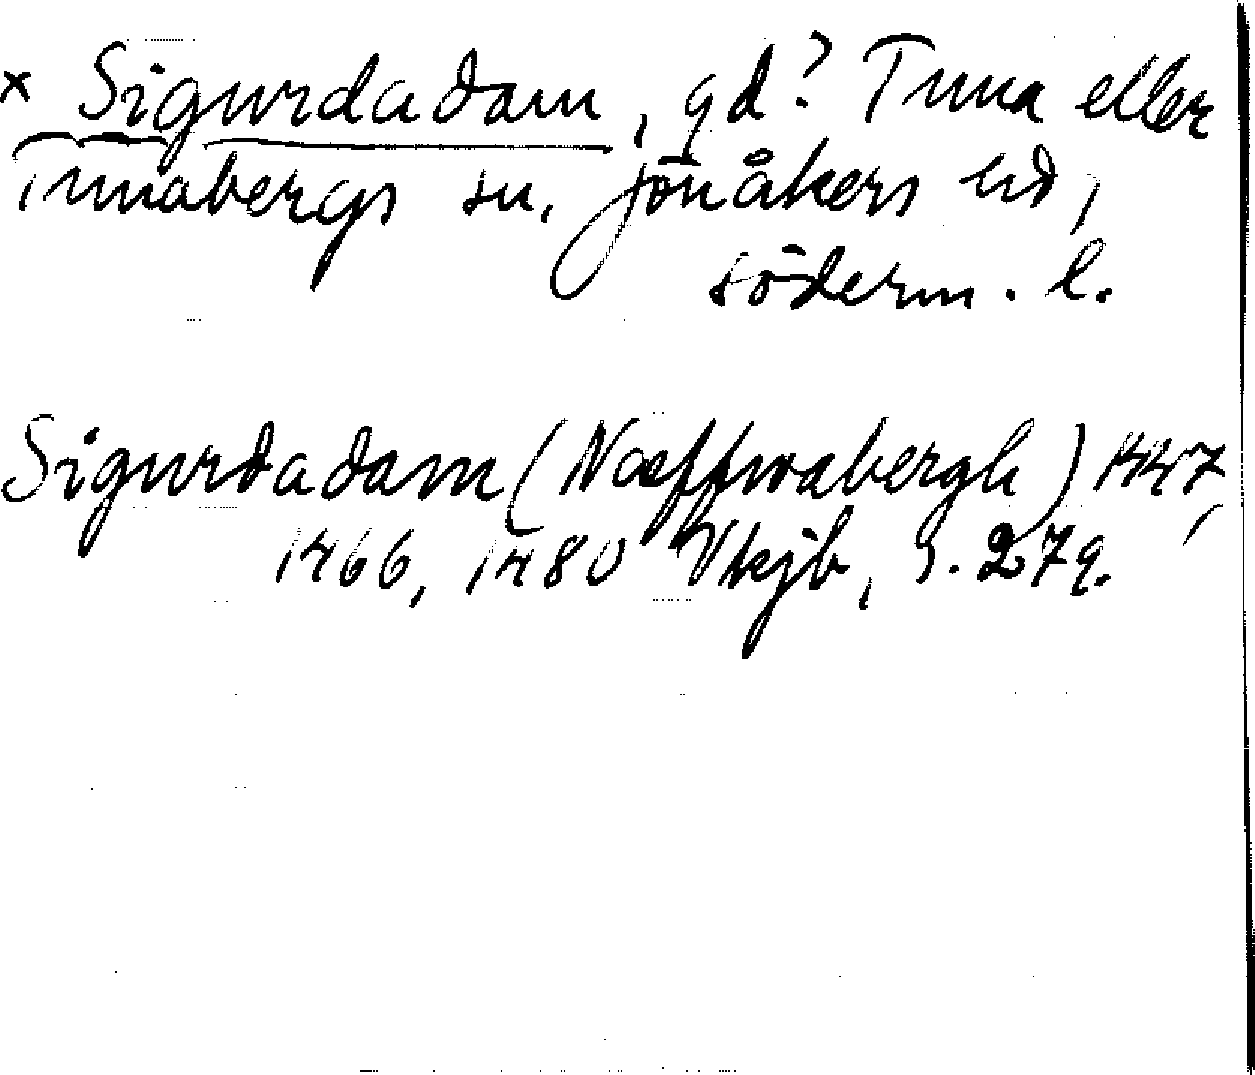 x Sigurdadam, gd? Tuna eller
Tunabergs sn, Jönåkers hd,
Söderm. l.
Sigurdadam (Næffwabergh) 1447,
1466, 1480 Vkjb, s. 279.